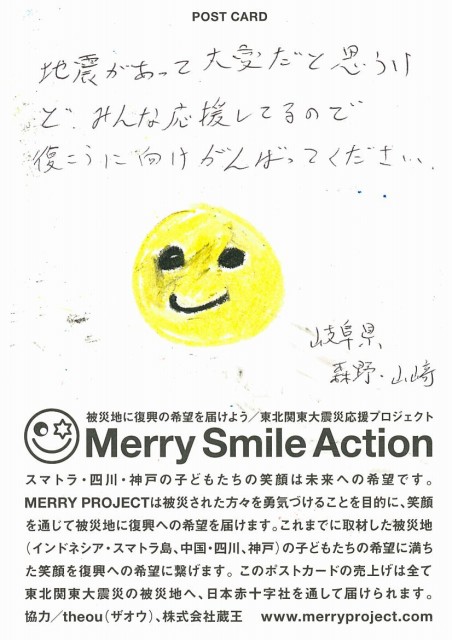 POST CARD
地震があって大変だと思うけ
ど、みんな応援してるので
復こうに向けがんばってください。
岐阜県
森野・山崎
被災地に復興の希望を届けよう／東北関東大震災応援プロジェクト
Merry Smile Action
スマトラ・四川・神戸の子どもたちの笑顔は未来への希望です。
MERRY PROJECTは被災された方々を勇気づけることを目的に、笑顔
を通じて被災地に復興への希望を届けます。これまでに取材した被災地
（インドネシア・スマトラ島、中国・四川、神戸）の子どもたちの希望に満ち
た笑顔を復興への希望に繋げます。このポストカードの売上げは全て
東北関東大震災の被災地へ、日本赤十字社を通して届けられます。
協力／theou（ザオウ）、株式会社蔵王　www.merryproject.com